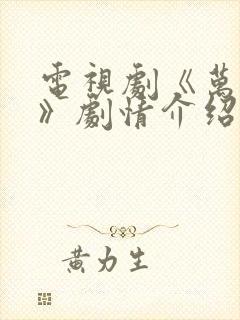 電視劇《萬
》劇情介紹
黃力生